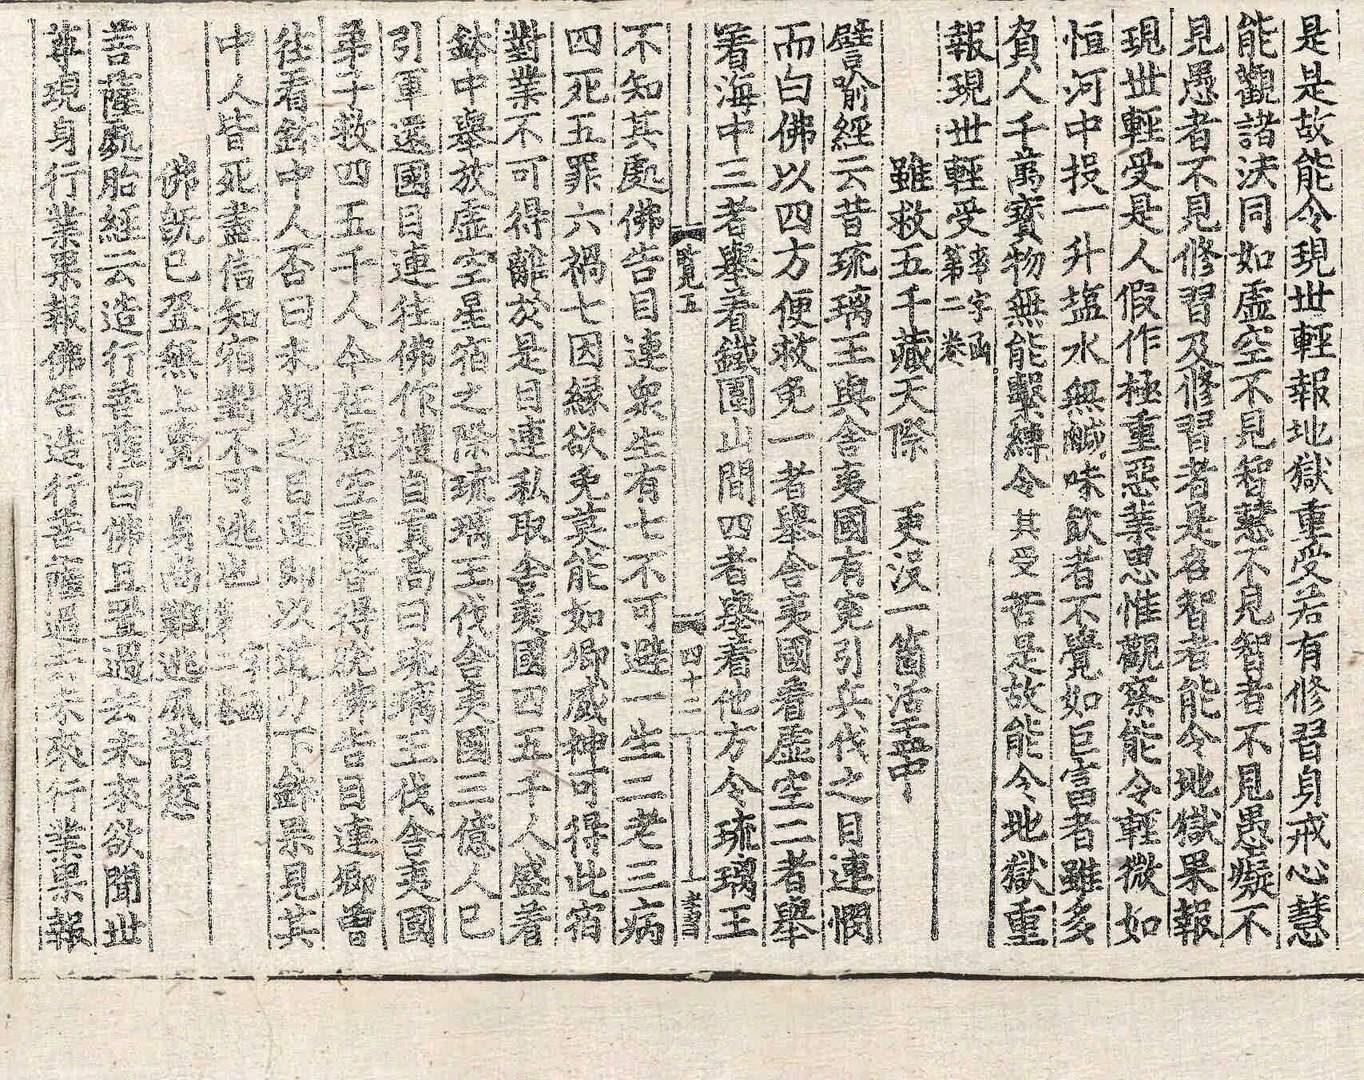 是是故能令現世輕報地獄重受若有修習身戒心慧
能觀諸法同如虛空不見智慧不見智者不見愚癡不
見愚者不見修習及修習者是名智者能令地獄果報
現世輕受是人假作極重惡業思惟觀察能令輕微如
恒河中投一升塩水無鹹味飲者不覺如巨富者雖多
負人千萬寶物無能繫縛令其受苦是故能令地獄重
報現世輕受第二卷 字函
雖救五千藏天際 更沒一箇活盂中
譬喻經云昔琉璃王與舍夷國有寃引兵伐之目連憫
而白佛以四方便救免一者舉舍夷國着虛空二者舉
着海中三者舉着鐵圍山間四者舉着他方令琉璃王
覽五 四十三
不知其處佛告目連衆生有七不可避一生二老三病
四死五罪六禍七因緣欲免莫能如卿威神可得此宿
對業不可得離於是目連私取舍夷國四五千人盛着
鉢中舉放虛空星宿之際琉璃王伐舍夷國三億人已
引軍還國目連往佛作禮自貢高曰琉璃王伐舍夷國
弟子救四五千人今在虛空盡皆得脫佛告目連卿曽
往看鉢中人否曰未視之目連即以道力下鉢果見其
中人皆死盡信知宿對不可逃也
佛既已登無上覺 身尚難逃夙昔愆
菩薩處胎經云造行菩薩白佛且置過去未來欲聞世
尊現身行業果報佛告造行菩薩過去未來行業果報